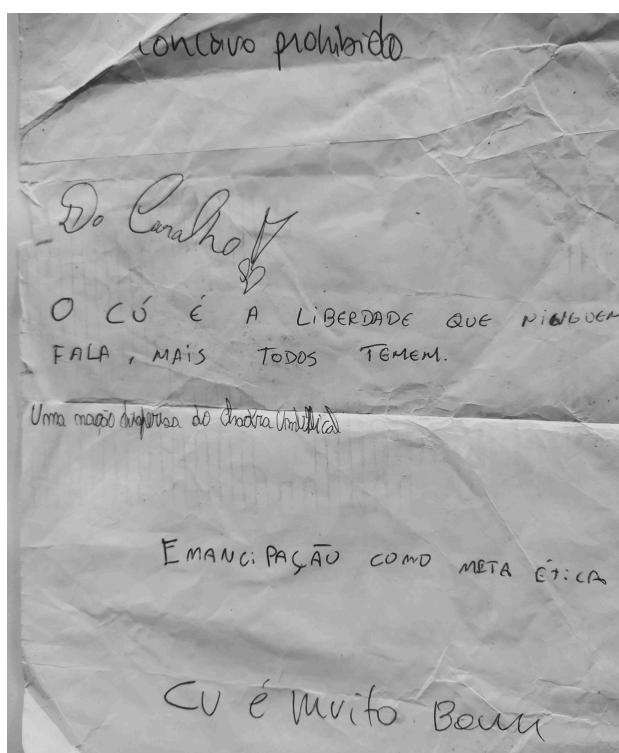 concavo prohibido
Do Caralho!
O CÚ É A LIBERDADE QUE NINGUEM
FALA, MAIS TODOS TEMEM.
Uma nação dispersa do Chacra Umbilical
EMANCIPAÇÃO COMO META ÉTICA
CU é muito Bom